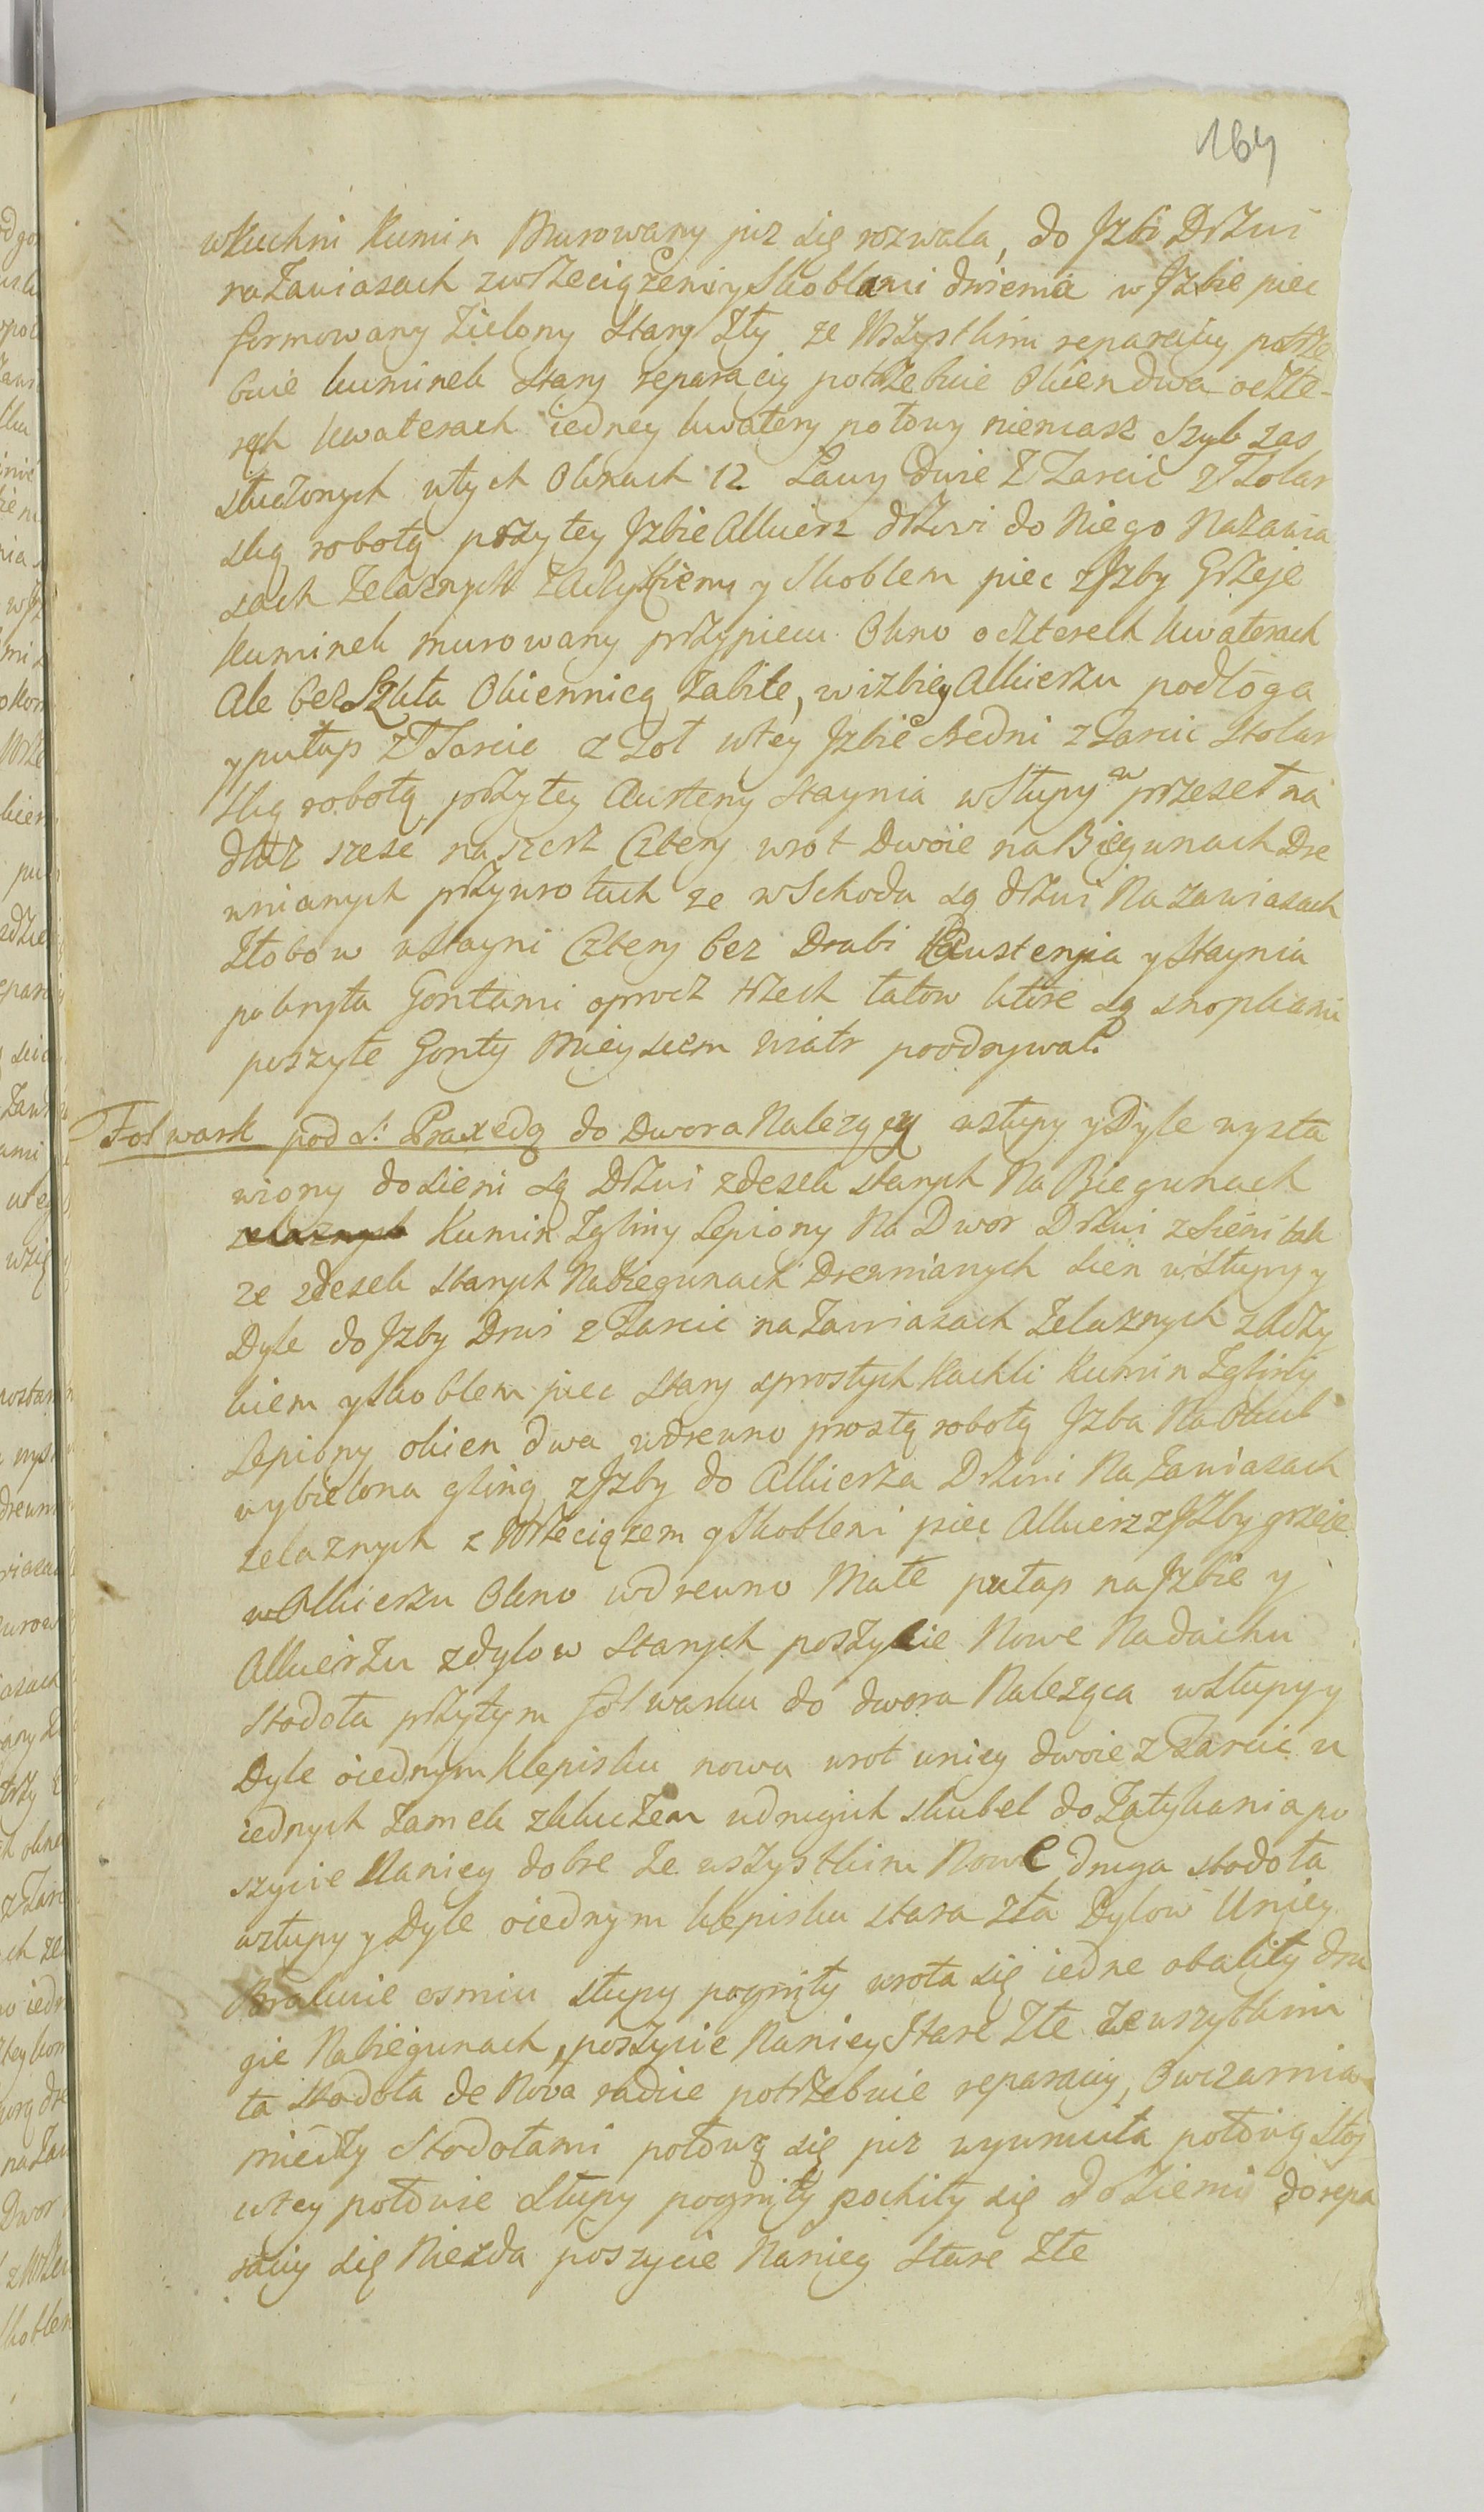 164
w Kuchni Kumin Murowany juz się rozwala, do Jzbi Drzwi
na Zawiasach z wrzeciązemi y Skoblami dwiema w Jzbie piec
formowany Zielony Stary Zły ze Wszystkim reparaciy potrze
buie kuminek Stary reparacij potrzebuie Okien dwa o czte-
rech kwaterach iedney kwatery połowy niemasz Szyb zas
stłuczonych w tych Oknach 12 Ławy dwie Z Tarcic Z Stolar
ską robotą przy tey Jzbie Alkierz drzwi do Niego Na zawia
sach Zelaznych y Skoblem piec z Jzby Grzeje
Kuminek murowany przy piecu Okno o czterech kwaterach
Ale bez Szkła Okiennicą Zabite, w izbie y Alkierzu podłoga
y pułap z Tarcic Stoł w tey Jzbie Sredni z Tarcic Stolar
ską robotą przy tey Austeny Staynia w Słupy w przeseł na
dłuz szesc na szerz Cztery wrot Dwoie na Biegunach Dre
wnianych przy wrotach ze w Schodu są drzwi Na zawiasach
Złobow w Stayni Cztery bez Drabi Austenia y Staynia
pokryta Gontami oprocz trzech łatow ktore są snopkami
poszyte Gonty Mieyscem Wiatr poodrywał.
Folwark pod S: Praxedą do Dwora Nalezący w słupy y Dyle wysta
wiony do Sieni są Drzwi z desek starych Na Biegunach
zelaznych Kumin Z gliny Lepiony Na Dwor Drzwi z Sieni tak
ze z desek starych Na Biegunach Drewnianych Sien w Słupy y
Dyle do Jzby Drwi z Tarcic na Zawiasach Zelaznych z haczy
kiem y Skoblem piec Stary z prostych Kachli Kumin Z gliny
Lepiony okien dwa w drewno prostą robotą Jzba Na Okuł
wybielona gliną z Jzby do Alkierza Drzwi Na Zawiasach
zelaznych z Wrzeciązem y Skoblem piec Alkierz z Jzby grzeje
w Alkierzu Okno w drewno Małe pułap na Jzbie y
Alkierzu z dylow starych poszycie Nowe Na dachu
Stodoła przy tym folwarku do dwora Naleząca w Słupy y
Dyle o iednym Klepisku nowa wrot u niey dwoie z Tarcic u
iednych Zamek z kluczem u drugich skobel do Zatykania po
szycie Na niey dobre Ze wszystkim Nowe druga stodoła
w słupy y Dyle o iednym klepisku stara Zła Dylow U niey
Brakuie osmiu słupy pogniły wrota się iedne obaliły dru
gie Na biegunach, poszycie Na niey Stare Złe ze wszytkim
ta Stodoła de Nova radice potrzebuie reparaciy, Owczarnia
między Stodołami połową się juz wywruciła połową stoj
w tey połowie Słupy pogniły pochiły się do Ziemi do repa
raciy się Niezda poszycie Na niey Stare Złe